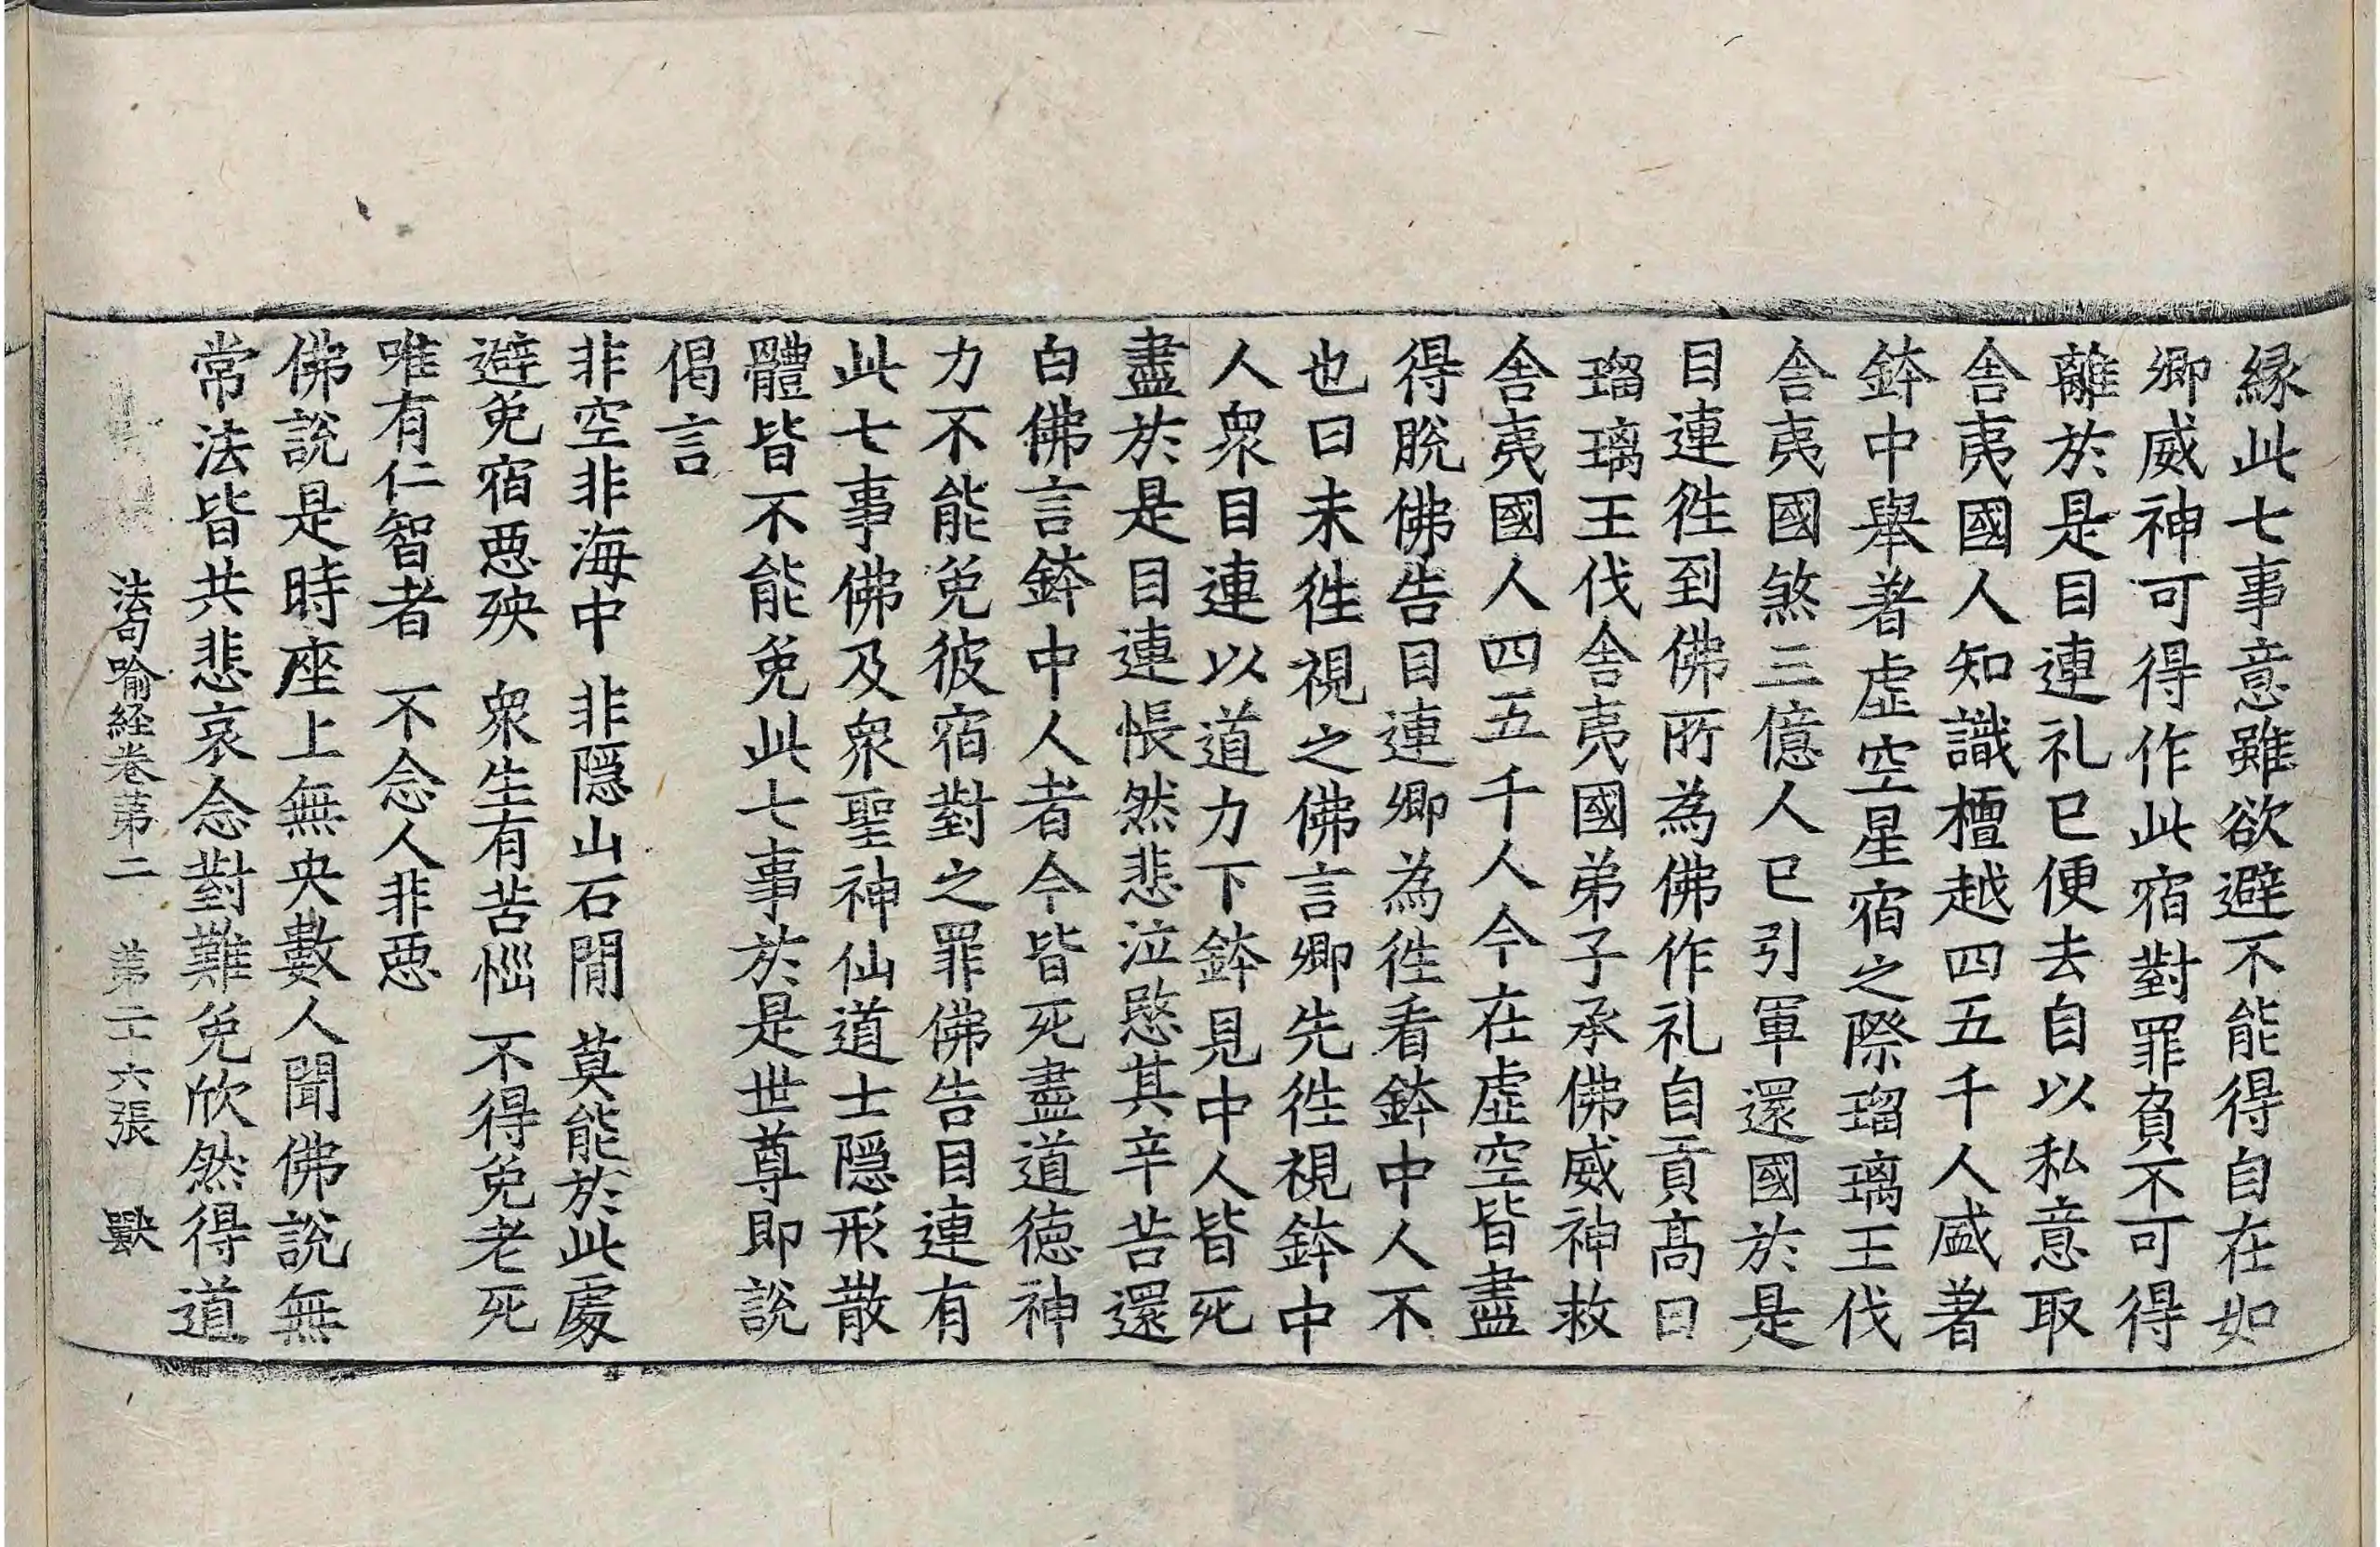 縁此七事意雖欲避不能得自在如
卿威神可得作此宿對罪負不可得
離於是目連礼已便去自以私意取
舎夷國人知識檀越四五千人盛著
鉢中舉著虛空星宿之際瑠璃王伐
舎夷國煞三億人已引軍還國於是
目連徃到佛所為佛作礼自貢髙曰
瑠璃王伐舎夷國弟子承佛威神救
舎夷國人四五千人今在虛空皆盡
得脫佛告目連卿為徃看鉢中人不
也曰未徃視之佛言卿先徃視鉢中
人衆目連以道力下鉢見中人皆死
盡於是目連悵然悲泣愍其辛苦還
白佛言鉢中人者今皆死盡道徳神
力不能免彼宿對之罪佛告目連有
此七事佛及衆聖神仙道士隱形散
體皆不能免此七事於是世尊即說
偈言
非空非海中 非隱山石間 莫能於此處
避免宿惡殃 衆生有苦惱 不得免老死
唯有仁智者 不念人非惡
佛說是時座上無央數人聞佛說無
常法皆共悲哀念對難免欣然得道
法句喻経卷第二 第二十六張